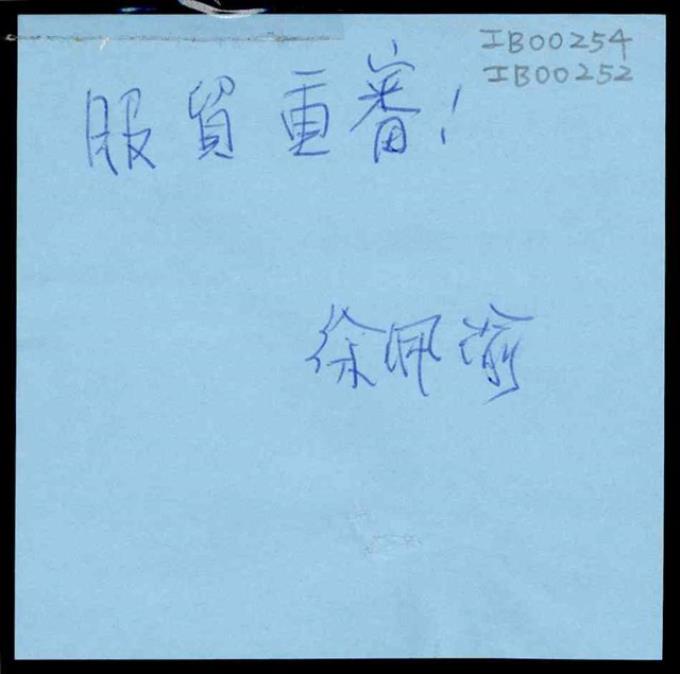 IB00254
IB00252
服貿重審!
徐佩